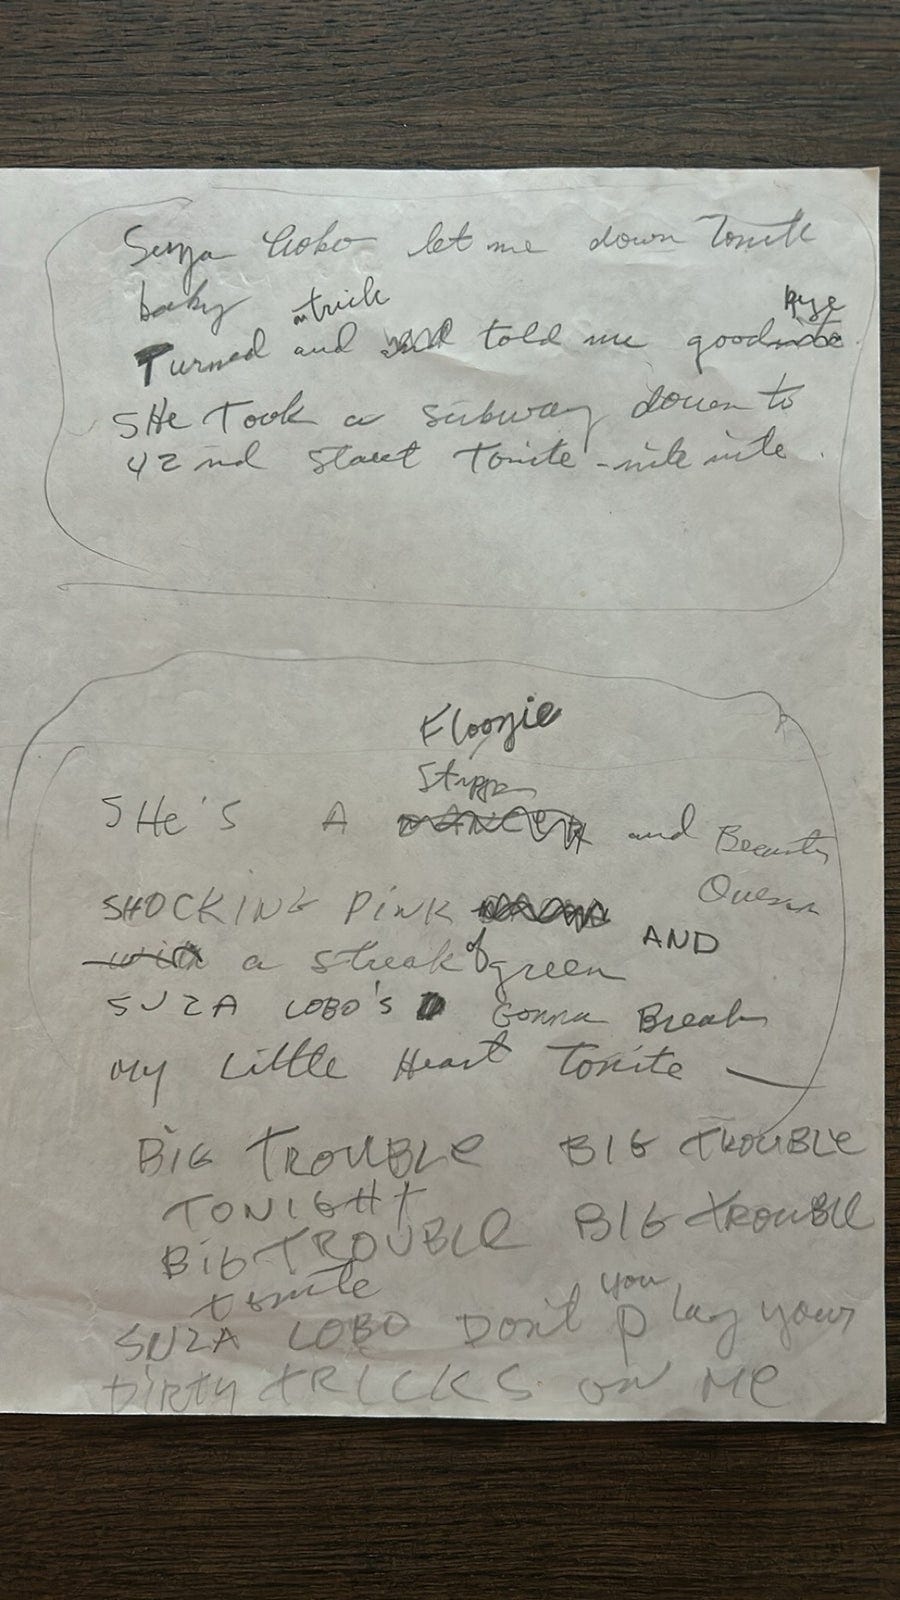 Suza Lobo let me down Tonite
baby a trick bye
Turned and told me good
SHe Took a subway down to
42nd Street Tonite - nite nite.
Floozie
Stripper
SHe's A DANCER and Beauty
Queen
SHOCKING PiNK
with a streak of green AND
SUZA LOBO'S Gonna Break
My Little Heart Tonite —
BIG TROUBLE BIG TROUBLE
TONIGHT
BIG TROUBLE BIG TROUBLE
tonite you
SUZA LOBO Don't play your
DIRTY TRICKS ON Me